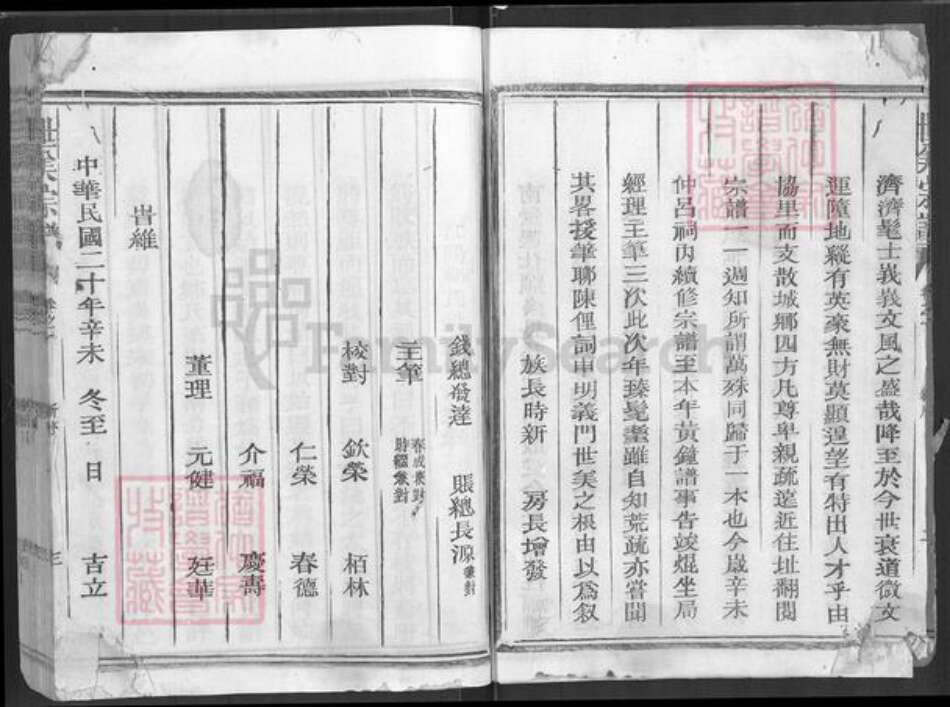 濟濟髦士峩峩文風之盛哉降至於今世衰道微文
運障地縱有英豪無財莫顯遑望有特出人才乎由
協里而支散城鄉四方凡尊卑親疏遠近住址翻閱
宗譜一一週知所謂萬殊同歸于一本也今歲辛未
仲呂祠內續修宗譜至本年黃鐘譜事告竣焜坐局
經理主筆三次此次年臻耄耋雖自知荒疏亦嘗聞
其畧援筆聊陳俚詞申明義門世美之根由以為叙
族長時新 房長增發
錢總發達 賬總長源兼對
主筆 春成兼對 時
校對 欽榮 栢林
仁榮 春德
介福 慶壽
董理 元健 廷華
旹維
中華民國二十年辛未 冬至 日 吉立
FamilySearch